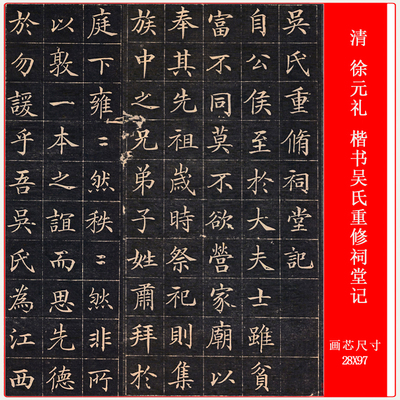 吳氏重脩祠堂記
自公侯至於大夫士雖貧
富不同莫不欲營家廟以
奉其先祖歲時祭祀則集
族中之兄弟子姓肅拜於
庭下雍〻然秩〻然非所
以敦一本之誼而思先德
於勿諼乎吾吳氏為江西
清 徐元礼 楷书吴氏重修祠堂记
画芯尺寸
28X97